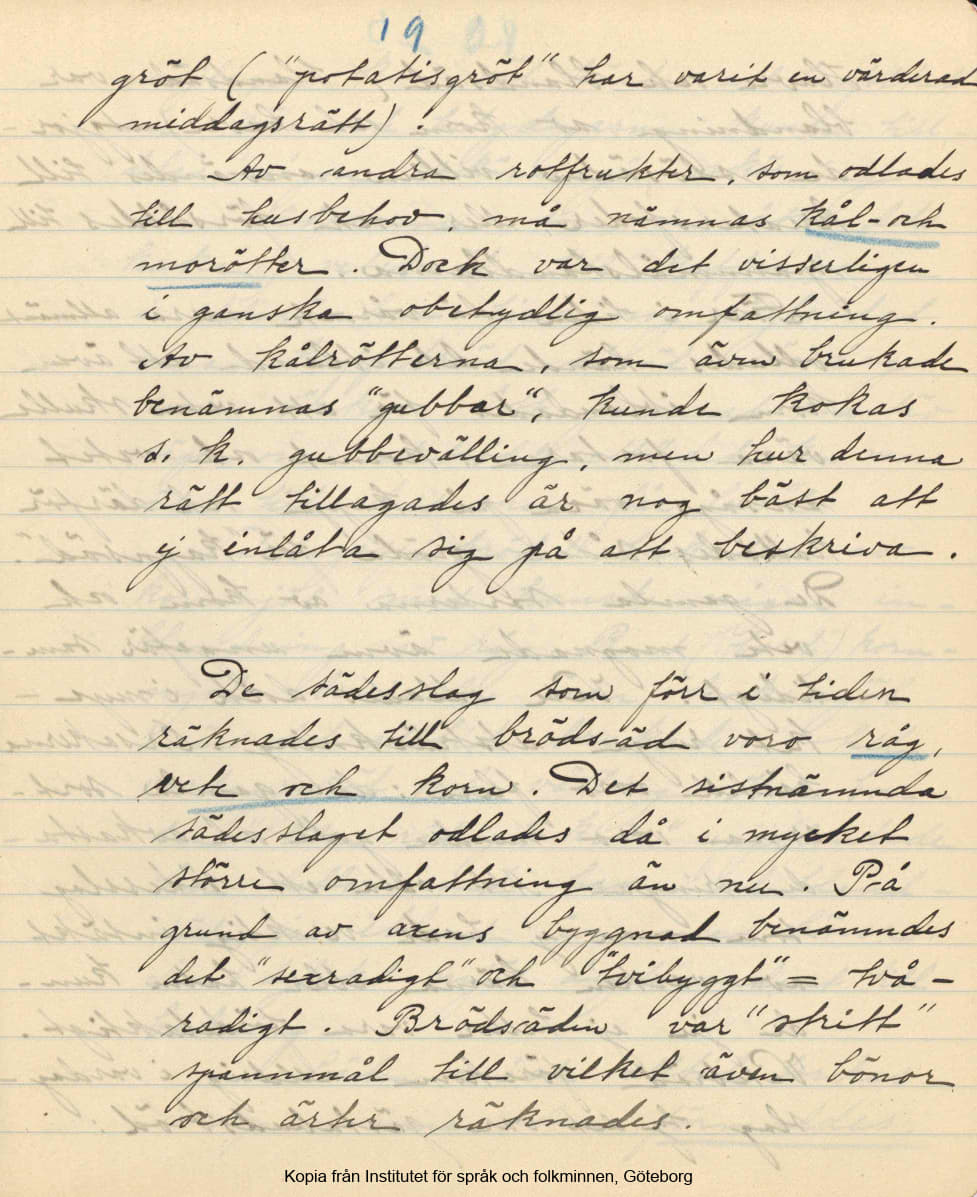 19
gröt ("potatisgröt" har varit en värderad
middagsrätt).
Av andra rotfrukter, som odlades
till husbehov, må nämnas kål- och
morötter. Dock var det visserligen
i ganska obetydlig omfattning.
Av kålrötterna, som även brukade
benämnas "gubbar", kunde kokas
s. k. gubbevälling, men hur denna
rätt tillagades är nog bäst att
ej inlåta sig på att beskriva.
De sädesslag som förr i tiden
räknades till brödsäd voro råg,
vete och korn. Det sistnämnda
sädesslaget odlades då i mycket
större omfattning än nu. På
grund av axens byggnad benämndes
det "sexradigt" och "tvibyggt" = två-
radigt. Brödsäden var "stritt"
spannmål till vilket även bönor
och ärter räknades.
Kopia från Institutet för språk och folkminnen, Göteborg